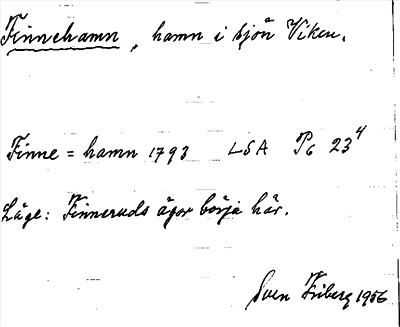 Finnehamn, hamn i sjön Viken.
Finne = hamn 1793 LSA P6 23⁴
Läge: Finneruds ägor börja här.
Sven Friberg 1956